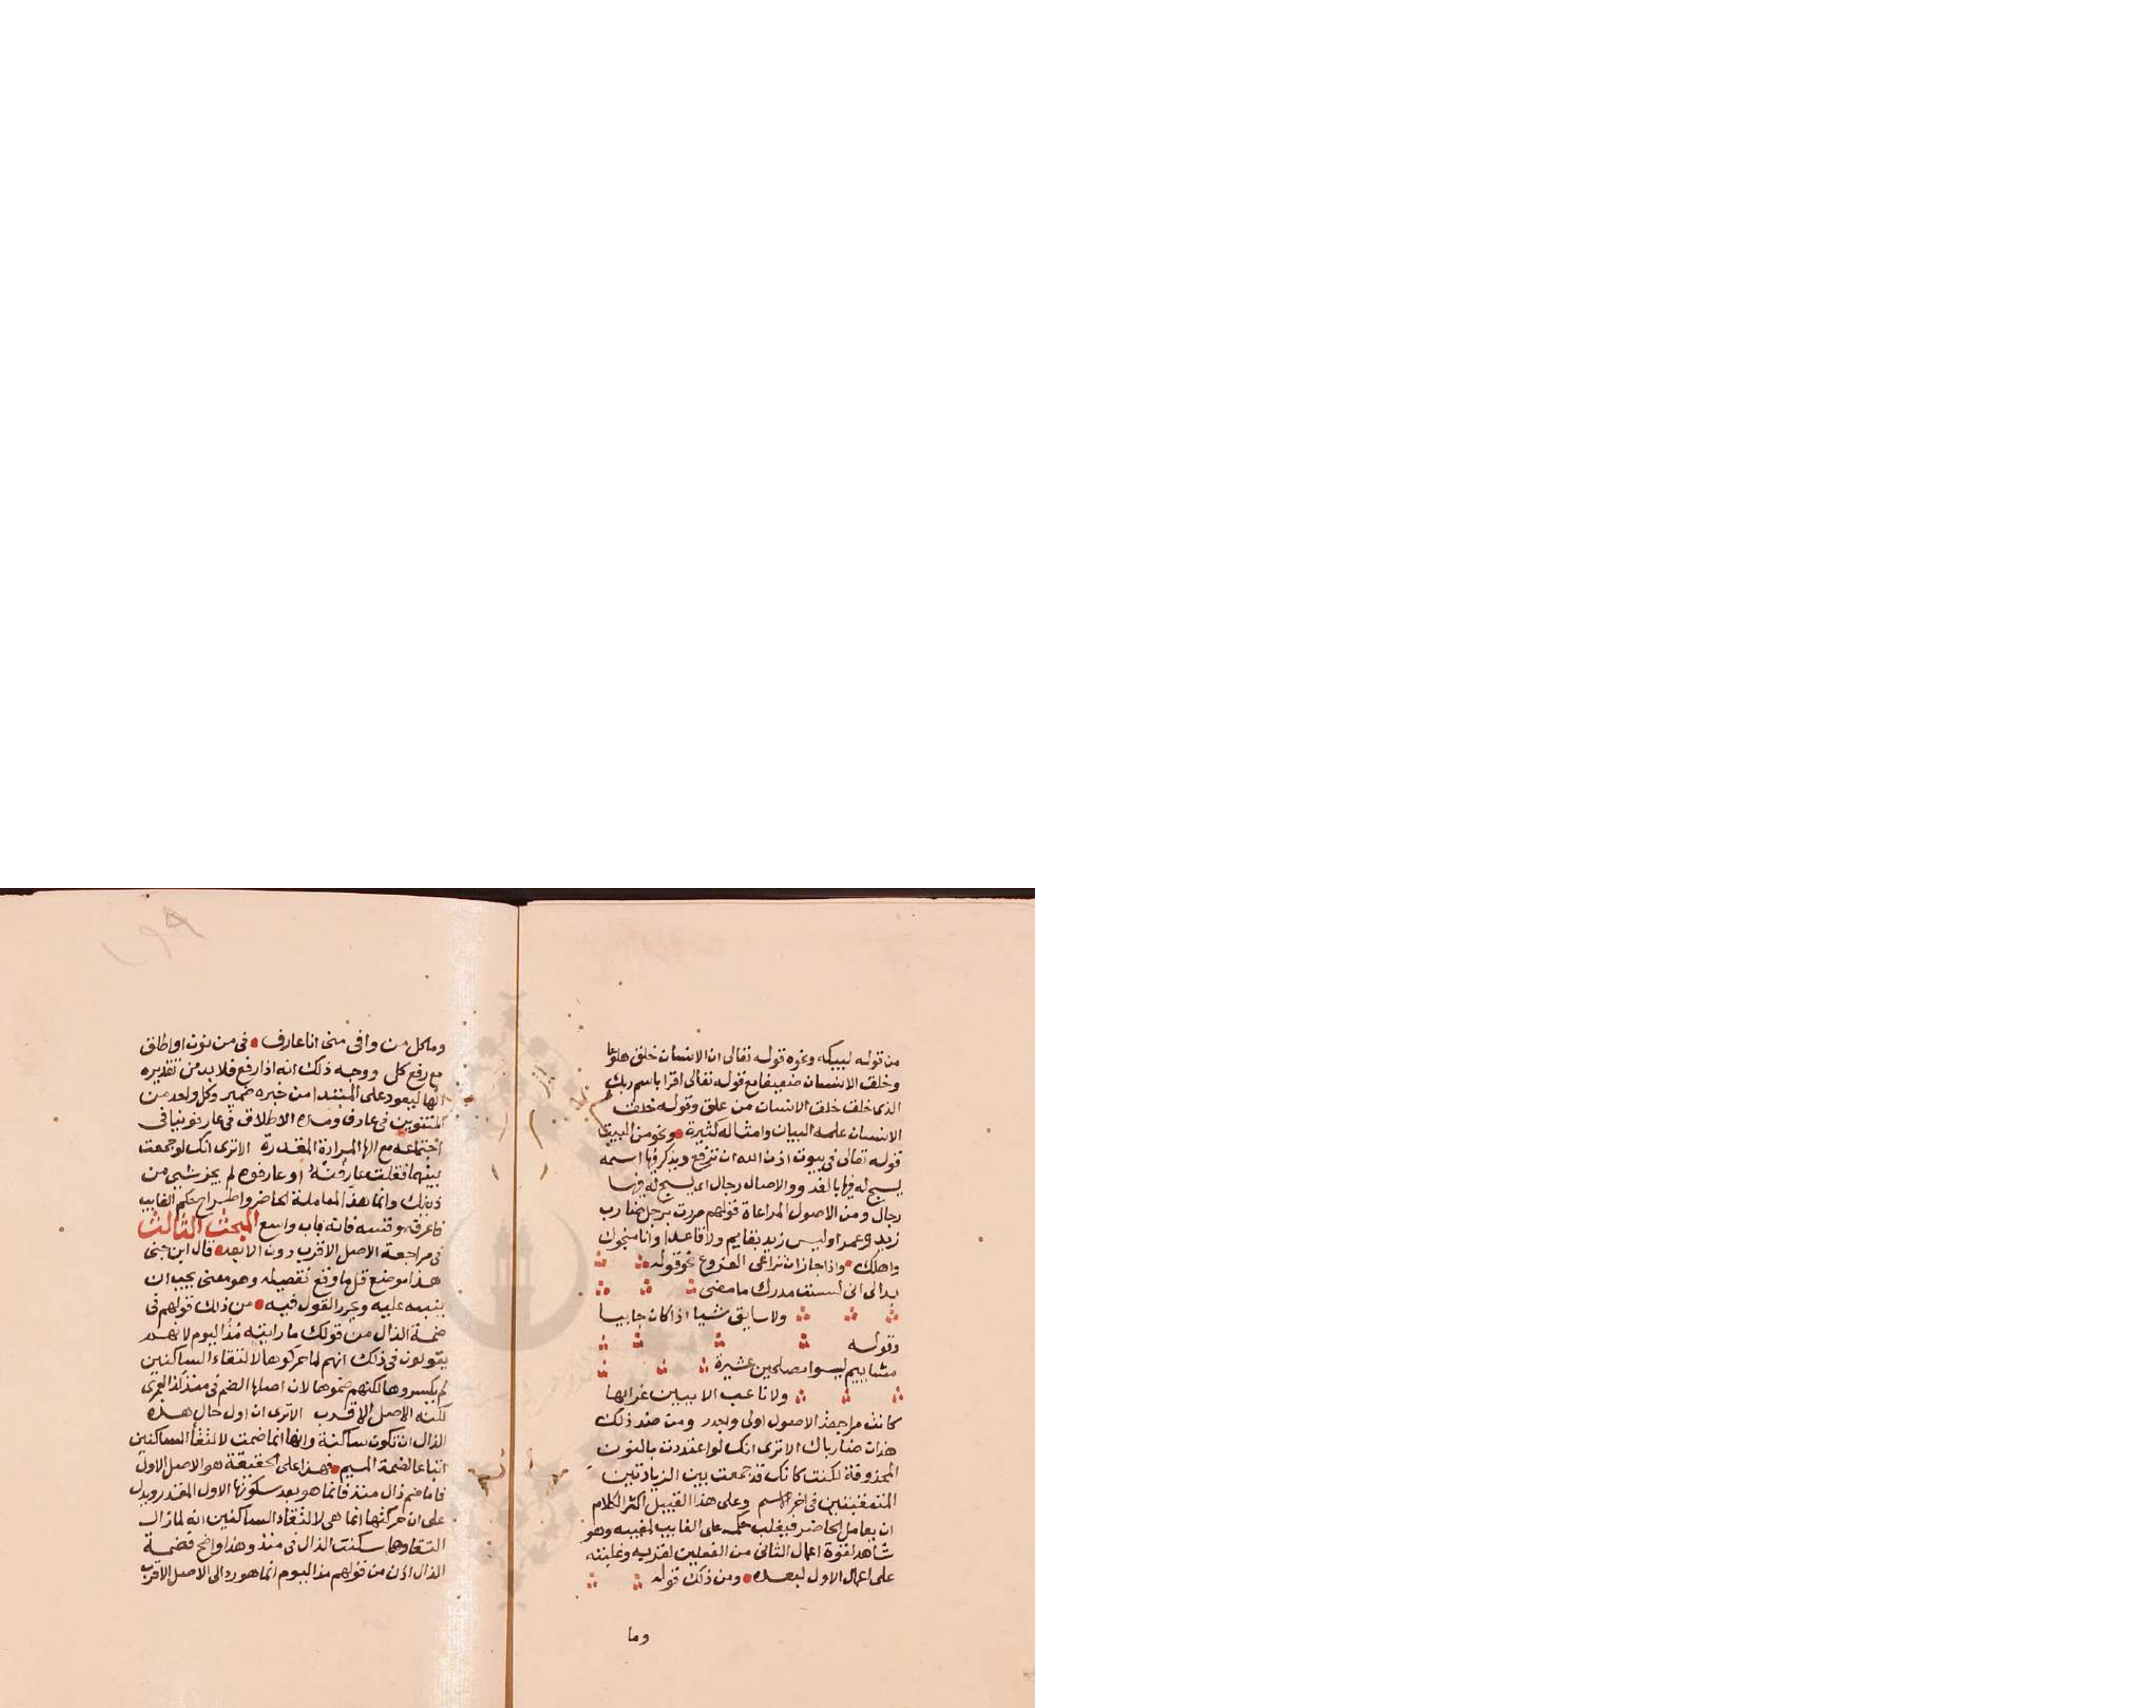 من قوله لببكه ونحوه قوله تعالى ان الانسان خلق هلوعا
وخلق الانسان ضعيفا مع قوله تعالى اقرا باسم ربك
الذى خلق خلق الانسان من علق وقوله خلق
الانسان علمه البيان وامثاله كثيرة ونحو من البيت
قوله تعالى فى بيوت اذن الله ان ترفع ويذكر فيها اسمه
يسبح له فيها بالغدو والاصال رجال اى يسبح له فيها
رجال ومن الاصول المراعاة قولهم مررت برجل ضارب
زيد وعمرا وليس زيد بقايم ولا قاعدا وانا منجوك
واهلك واذا جاز ان تراعى الفروع نحو قوله
بدا لى انى لست مدرك ما مضى
ولا سابق شيا اذا كان جاييا
وقوله
مشاييم ليسوا مصلحين عشيرة
ولا ناعب الا ببين غرابها
كانت مراجعة الاصول اولى واجدر ومن ضد ذلك
هذان ضارباك الا ترى انك لو اعتددت بالنون
المحذوفة لكنت كانك قد جمعت بين الزيادتين
المتعقبتين فى اخر الاسم وعلى هذا القبيل اكثر الكلام
ان يعامل الحاضر فيغلب حكمه على الغايب لمغيبه وهو
شاهد لقوة اعمال الثانى من الفعلين لقربه وغلبته
على اعمال الاول لبعده ومن ذلك قوله
وما
وما كل من وافى منى انا عارف فى من نون او اطلق
مع رفع كل ووجه ذلك انه اذا رفع فلا بد من تقديره
الها ليعود على المبتدا من خبره ضمير وكل واحد من
التنوين فى عارف ومدة الاطلاق فى عارفو ينافى
اجتماعه مع الها المرادة المقدرة الا ترى انك لو جمعت
بينهما فقلت عارفنه او عارفوه لم يجز شىء من
ذينك وانما هذا لمعاملة الحاضر واطراح حكم الغايب
فاعرفه وقسه فانه باب واسع المبحث الثالث
فى مراجعة الاصل الاقرب دون الابعد قال ابن جنى
هذا موضع قل ما وقع تفصيله وهو معنى يجب ان
ينبه عليه ويحرر القول فيه من ذلك قولهم فى
ضمة الذال من قولك ما رايته مذ اليوم لانهم
يقولون فى ذلك انهم لما حركوها لالتقاء الساكنين
لم يكسروها لكنهم ضموها لان اصلها الضم فى منذ كذا لعمرى
لكنه الاصل الاقرب الا ترى ان اول حال هذه
الذال ان تكون ساكنة وانها انما ضمت لالتقا الساكنين
اتباعا لضمة الميم فهذا على الحقيقة هو الاصل الاول
فاما ضم ذال منذ فانما هو بعد سكونها الاول المقدر ويدل
على ان حركتها انما هى لالتقاء الساكنين انه لما زال
التقاوهما سكنت الذال فى منذ وهذا واضح فضمة
الذال اذن من قولهم مذ اليوم انما هو رد الى الاصل الاقرب